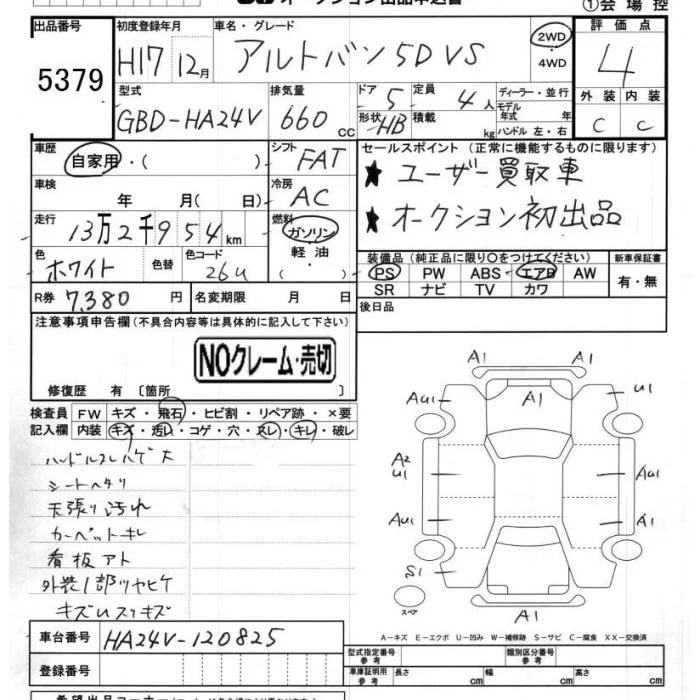 オークション出品申込書
①会場控
出品番号 初度登録年月 車名・グレード 評価点
5379 H17 12月 アルトバン 5D VS 2WD・4WD 4
型式 排気量 ドア 定員 ディーラー・並行 外装 内装
GBD-HA24V 660 CC 5 4人 モデル年式 年 C C
形状 HB 積載 kg ハンドル 左・右
車歴 シフト セールスポイント (正常に機能するものに限ります)
自家用・( ) FAT ★ユーザー買取車
車検 冷房 ★オークション初出品
年 月( 日) AC
走行 燃料
13万2千954km ガソリン・軽油・
色 色替 色コード 装備品(純正品に限り〇をつけてください) 新車保証書
ホワイト 26U PS PW ABS エアB AW 有・無
SR ナビ TV カワ
R券 7,380円 名変期限 月 日 後日品
注意事項申告欄(不具合内容等は具体的に記入して下さい)
NOクレーム・売切
修復歴 有 〔箇所 〕
検査員 FW キズ・飛石・ヒビ割・リペア跡・×要
記入欄 内装 キズ・汚レ・コゲ・穴・スレ・キレ・破レ
ハンドルスレハゲ大
シートヘタリ
天張り汚れ
カーペットキレ
看板アト
外装1部ツヤヒケ
キズUスリキズ
A1 A1
AU1 A1 U1
A2
U1 AU1
AU1 A1
S1
スペア
A1
A-キズ E-エクボ U-凹み W-補修跡 S-サビ C-腐食 XX-交換済
車台番号 HA24V-120825
型式指定番号 参考 類別区分番号 参考
登録番号 車庫証明用 参考 長さ cm 幅 cm 高さ cm
希望出品コーナー